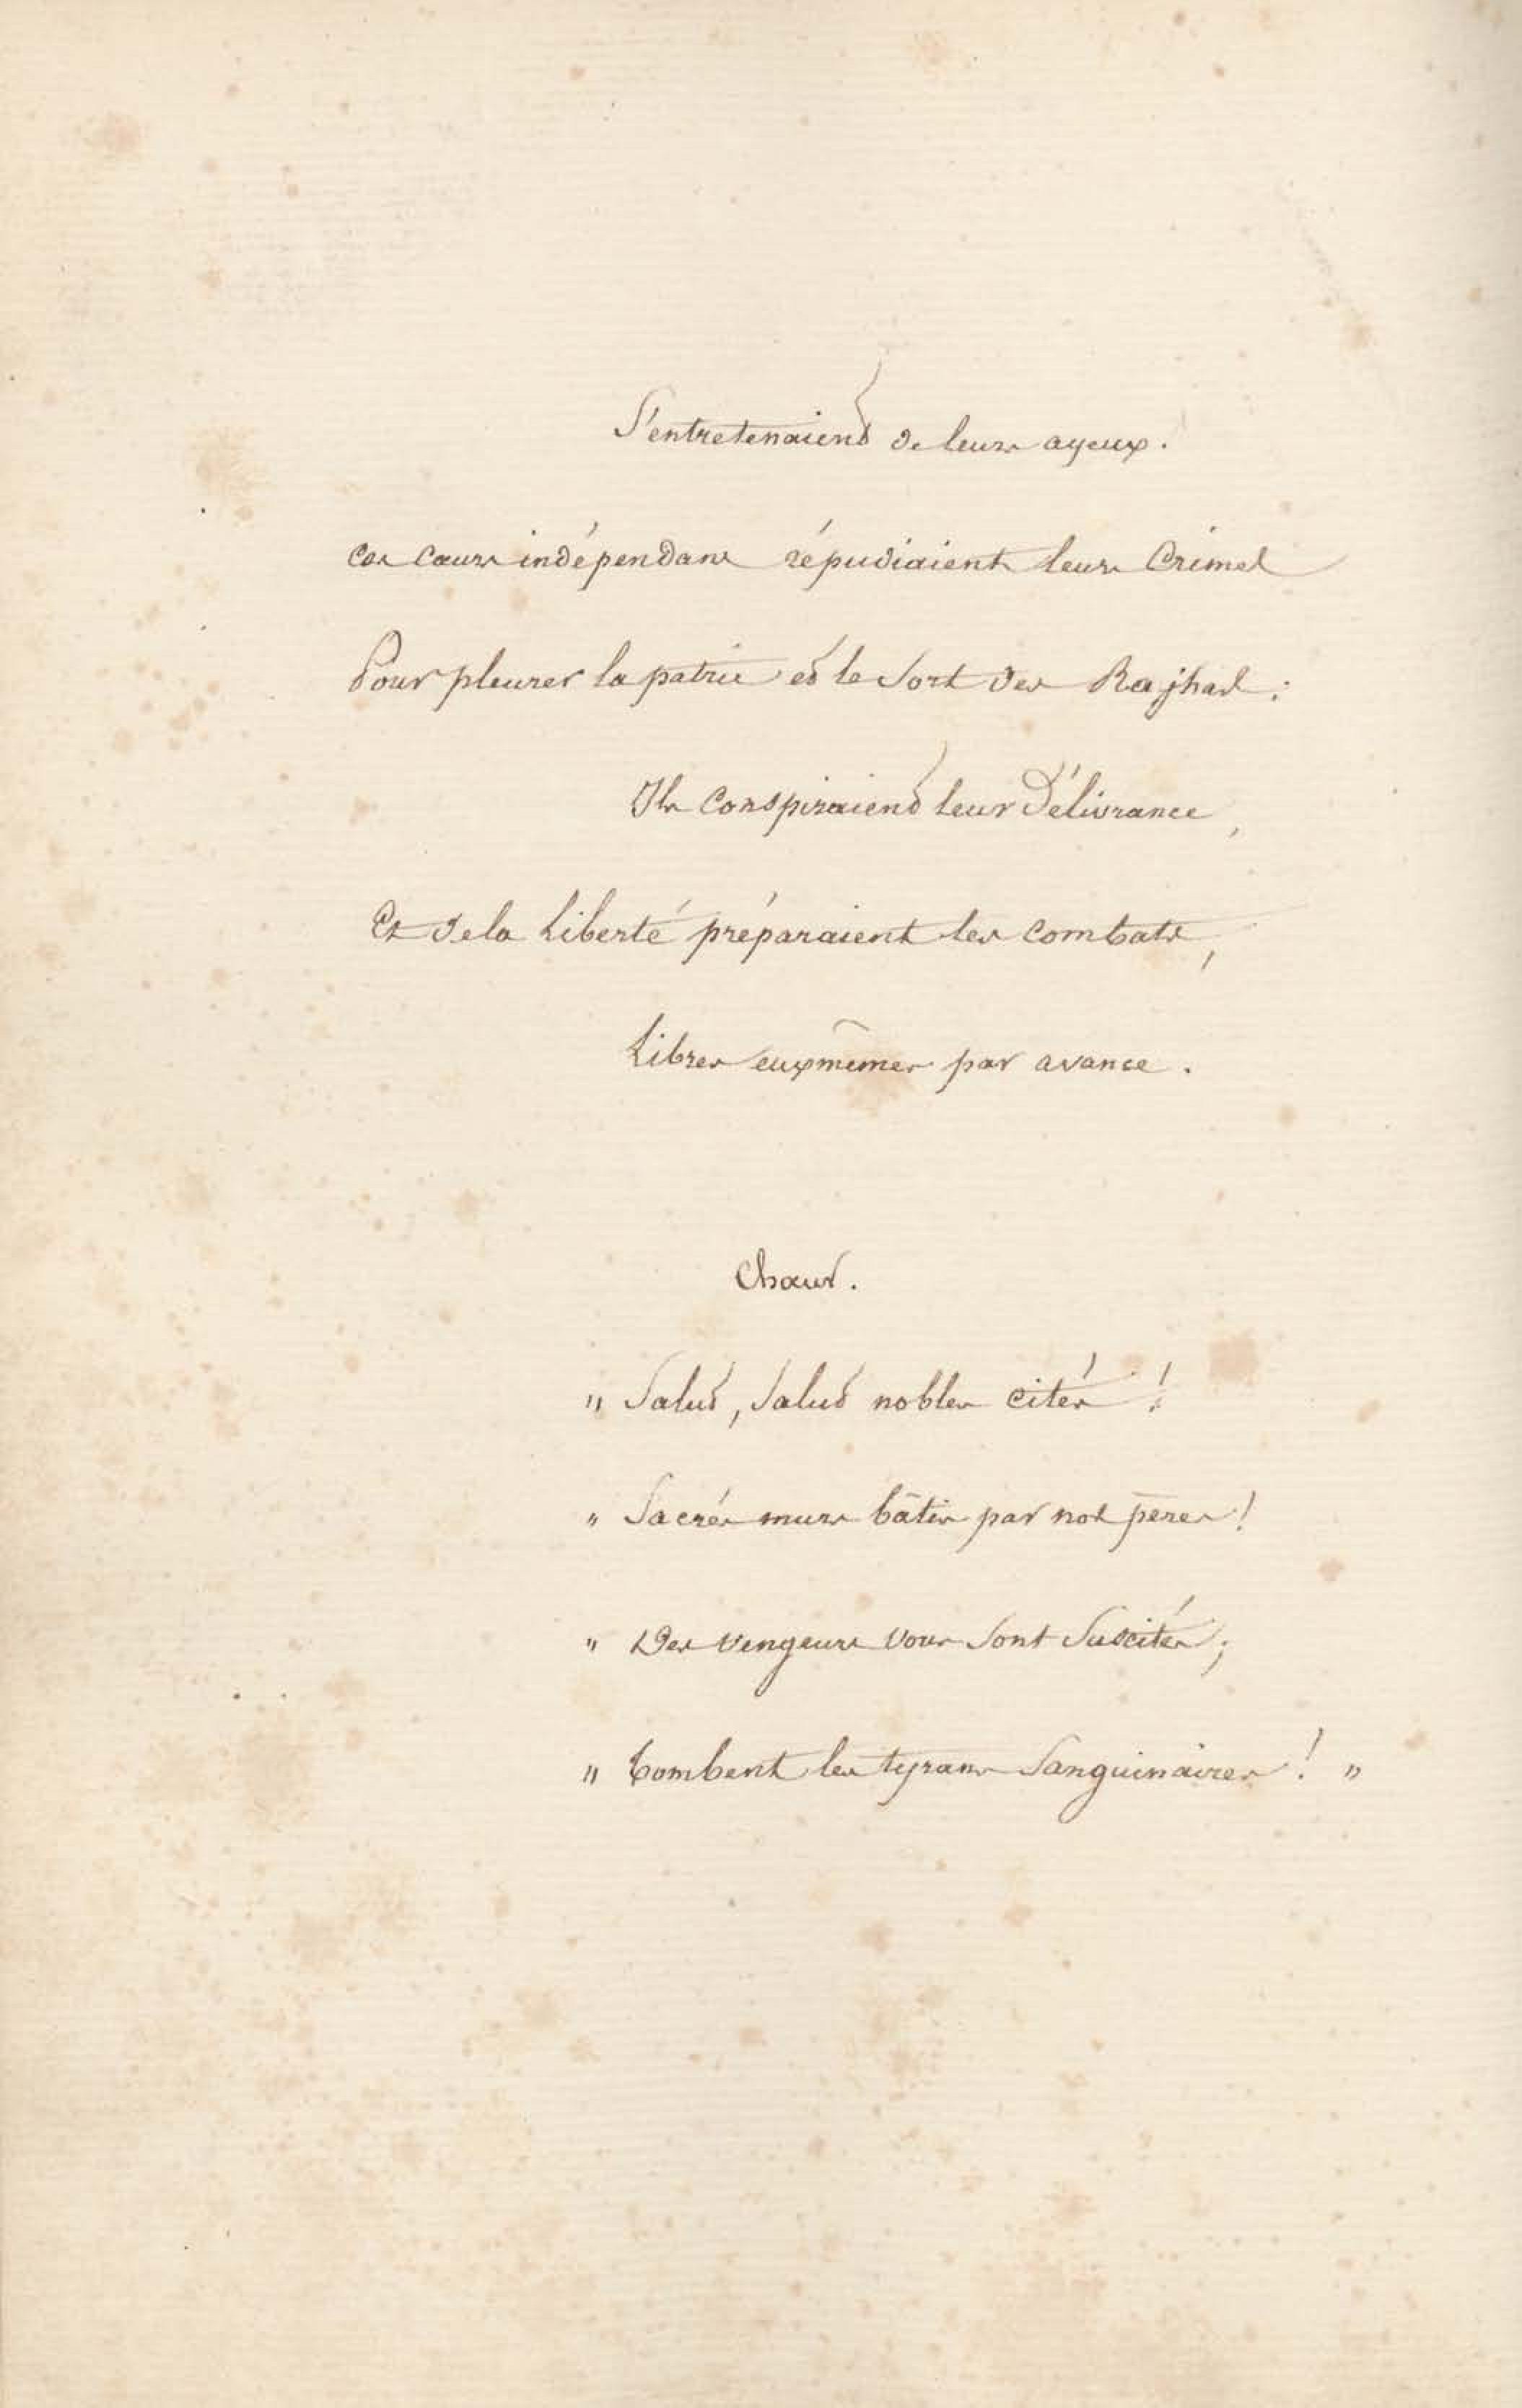 S'entretenaient de leurs ayeux.
Ces cœurs indépendans répudiaient leurs Crimes
Pour pleurer la patrie et le sort des Rajhas :
Ils Conspiraient leur Délivrance,
Et de la Liberté préparaient les combats,
Libres euxmêmes par avance.
Chœur.
" Salut, Salut nobles cités !
" Sacrés murs bâtis par nos pères !
" Des Vengeurs Vous Sont Suscités ;
" Tombent les tyrans Sanguinaires ! "